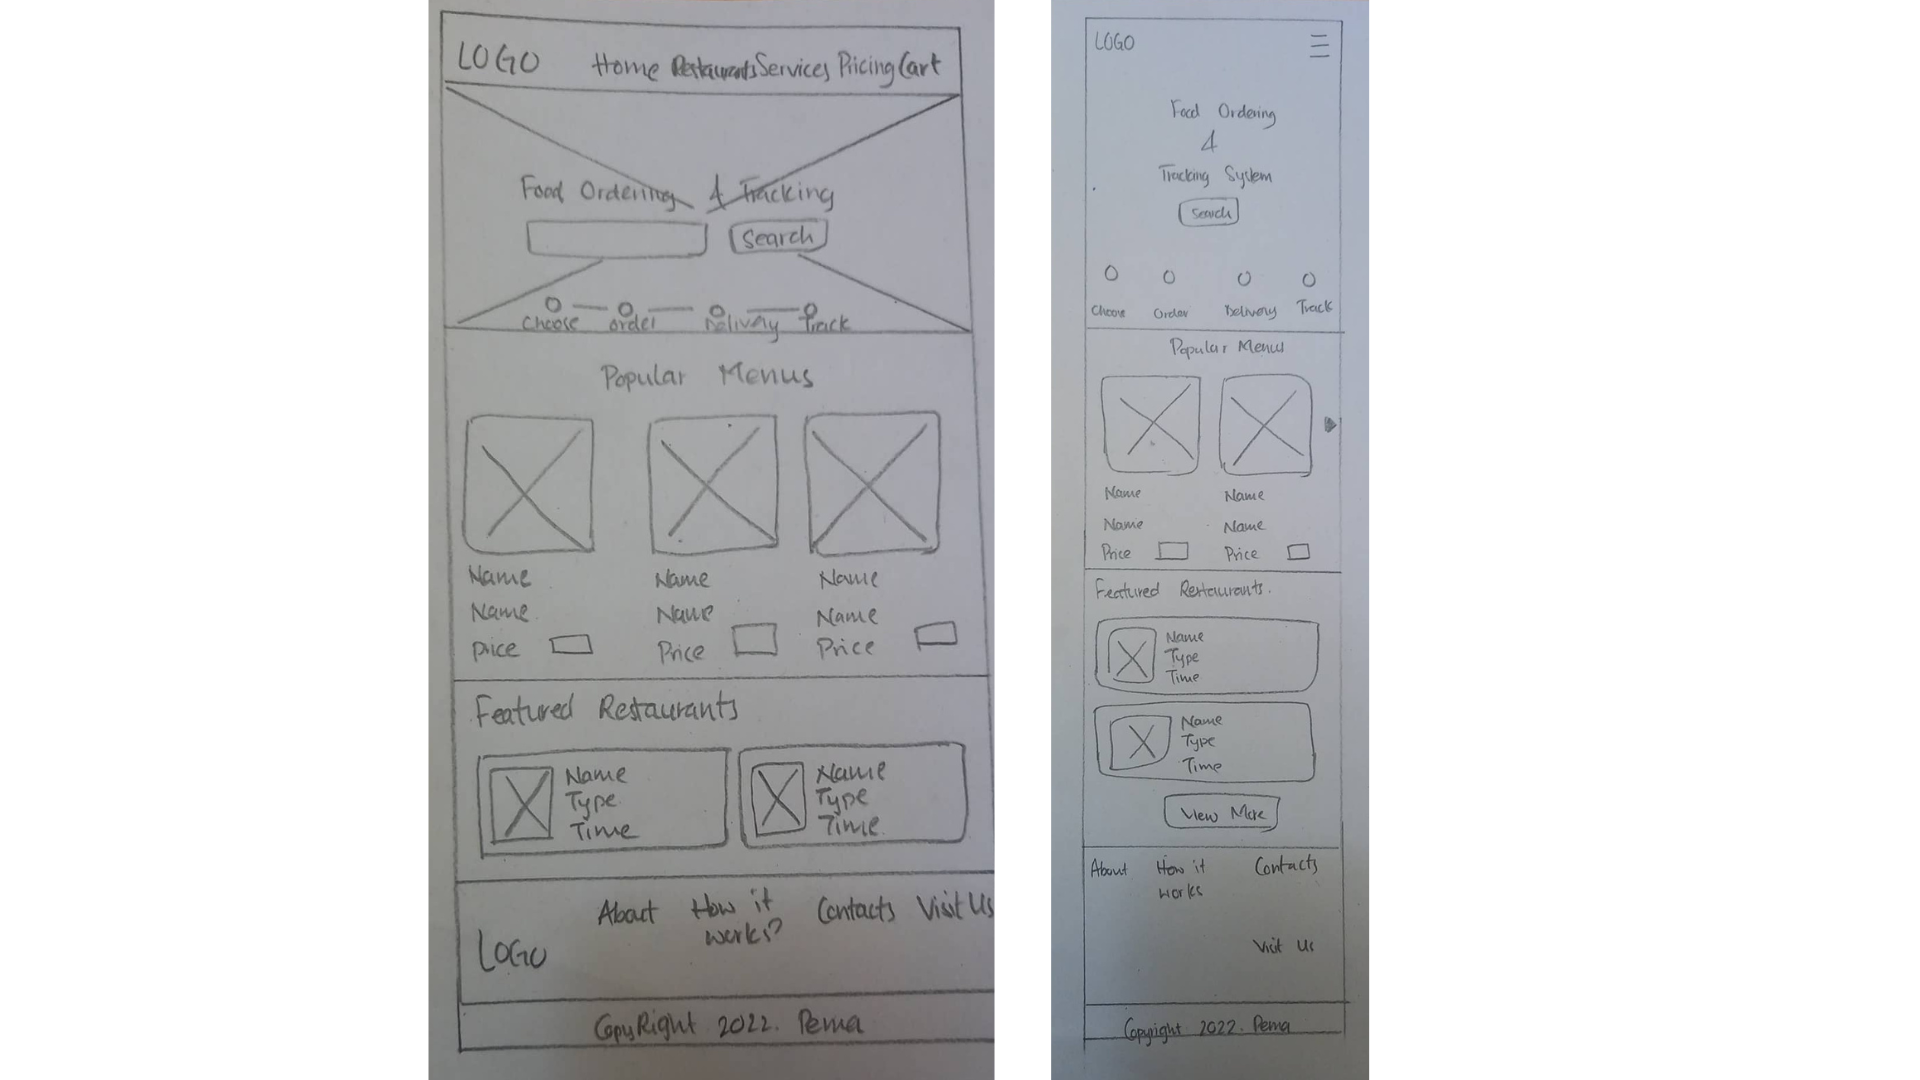 LOGO Home Restaurants Services Pricing Cart
Food Ordering & Tracking
Search
Choose Order Delivery Track
Popular Menus
Name Name Name
Name Name Name
Price Price Price
Featured Restaurants
Name Name
Type Type
Time Time
About How it Contacts Visit Us
works?
LOGO
CopyRight 2022. Pema
LOGO
Food Ordering
&
Tracking System
Search
Choose Order Delivery Track
Popular Menus
Name Name
Name Name
Price Price
Featured Restaurants.
Name
Type
Time
Name
Type
Time
View More
About How it Contacts
works
Visit Us
Copyright 2022. Pema